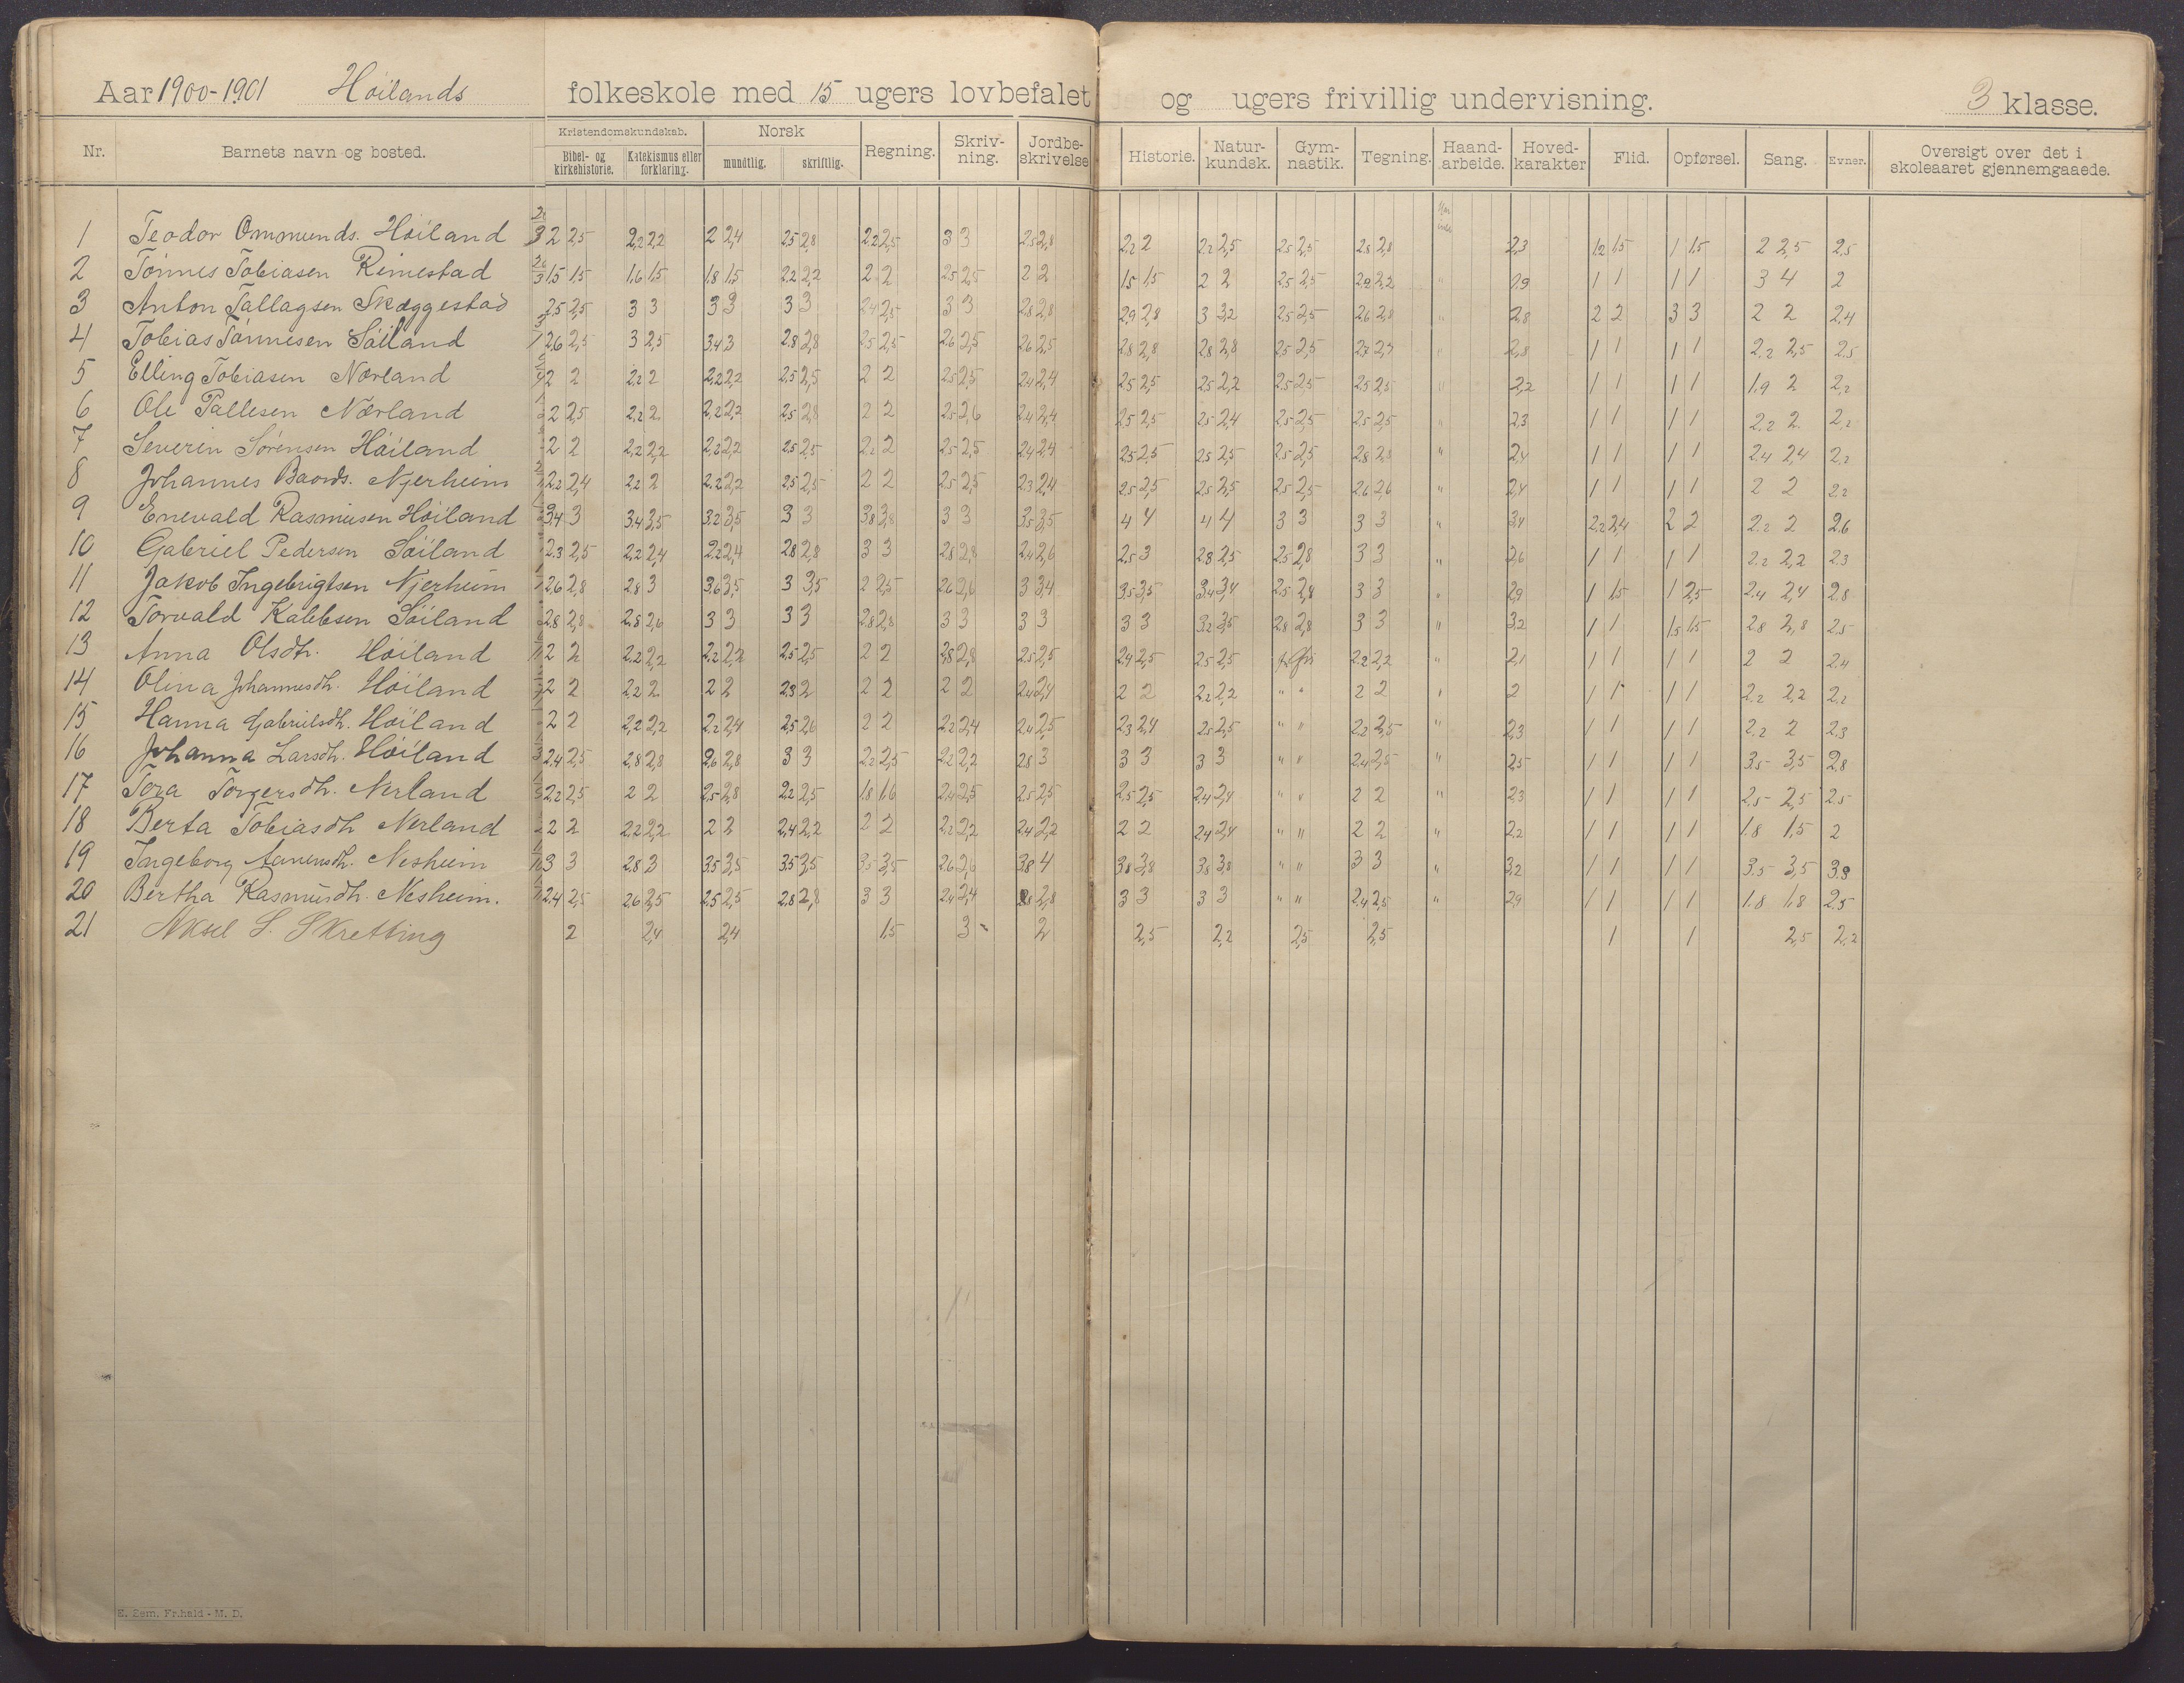 Aar 1900-1901 Høilands folkeskole med 15 ugers lovbefalet og ugers frivillig undervisning. 3 klasse.
Nr. Barnets navn og bosted. Kristendomskundskab. Bibel- og kirkehistorie. Katekismus eller forklaring. Norsk mundtlig. skriftlig. Regning. Skriv-ning. Jordbe-skrivelse Historie. Natur-kundsk. Gym-nastik. Tegning. Haand-arbeide. Hoved-karakter Flid. Opførsel. Sang. Evner. Oversigt over det i skoleaaret gjennemgaaede.
1 Teodor Ommunds. Høiland 2 2,5 2,2 2,2 2 2,4 2,5 2,8 2,2 2,5 3 3 2,5 2,8 2,2 2 2,2 2,5 2,5 2,5 2,8 2,8 2,3 1,2 1,5 1 1,5 2 2,5 2,5
2 Tønnes Tobiasen Rimestad 1,5 1,5 1,6 1,5 1,8 1,5 2,2 2,2 2 2 2,5 2,5 2 2 1,5 1,5 2 2 2,5 2,5 2,2 2,2 " 1,9 1 1 1 1 3 4 2
3 Anton Tallagsen Skæggestad 2,5 2,5 3 3 3 3 3 3 2,4 2,5 3 3 2,8 2,8 2,9 2,8 3 3,2 2,5 2,5 2,6 2,8 " 2,8 2 2 3 3 2 2 2,4
4 Tobias Tønnesen Søiland 2,6 2,5 3 2,5 3,4 3 2,8 2,8 2,5 2,5 2,6 2,5 2,6 2,5 2,8 2,8 2,8 2,8 2,5 2,5 2,7 2,7 " 2,8 1 1 1 1 2,2 2,5 2,5
5 Elling Tobiasen Nærland 2 2 2,2 2 2,2 2,2 2,5 2,5 2 2 2,5 2,5 2,4 2,4 2,5 2,5 2,5 2,2 2,5 2,5 2,5 2,5 " 2,2 1 1 1 1 1,9 2 2,2
6 Ole Pallesen Nærland 2 2,5 2,2 2 2,2 2,2 2,5 2,8 2 2 2,5 2,6 2,4 2,4 2,5 2,5 2,5 2,4 2,5 2,5 2,5 2,5 " 2,3 1 1 1 1 2,2 2 2,2
7 Severin Sørensen Høiland 2 2 2,2 2,2 2,2 2,2 2,5 2,5 2,2 2 2,5 2,5 2,4 2,4 2,5 2,5 2,5 2,5 2,5 2,5 2,8 2,8 " 2,4 1 1 1 1 2,4 2,4 2,2
8 Johannes Baards. Njerheim 2,2 2,4 2,2 2 2,2 2,2 2,5 2,5 2 2 2,5 2,5 2,3 2,4 2,5 2,5 2,5 2,5 2,5 2,5 2,6 2,6 " 2,4 1 1 1 1 2 2 2,2
9 Enevald Rasmusen Høiland 3,4 3 3,4 3,5 3,2 3,5 3 3 3,8 3,8 3 3 3,5 3,5 4 4 4 4 3 3 3 3 " 3,4 2,2 2,4 2 2 2,2 2 2,6
10 Gabriel Pedersen Søiland 2,3 2,5 2,2 2,4 2,2 2,4 2,8 2,8 3 3 2,8 2,8 2,4 2,6 2,5 3 2,8 2,5 2,5 2,8 3 3 " 2,6 1 1 1 1 2,2 2,2 2,3
11 Jakob Ingebrigtsen Njerheim 2,6 2,8 2,8 3 3,6 3,5 3 3,5 2 2,5 2,6 2,6 3 3,4 3,5 3,5 3,4 3,4 2,5 2,8 3 3 " 2,9 1 1,5 1 2,5 2,4 2,4 2,8
12 Torvald Kalebsen Søiland 2,8 2,8 2,8 2,6 3 3 3 3 2,8 2,8 3 3 3 3 3 3 3,2 3,5 2,8 2,8 3 3 " 3,2 1 1 1,5 1,5 2,8 2,8 2,5
13 Anna Olsdtr. Høiland 2 2 2,2 2,2 2,2 2,2 2,5 2,5 2 2 2,8 2,8 2,5 2,5 2,4 2,5 2,5 2,5 2,2 2,2 " 2,1 1 1 1 1 2 2 2,4
14 Olina Johannesdh. Høiland 2 2 2,2 2 2 2 2,3 2 2 2 2 2 2,4 2,4 2 2 2,2 2,2 " " 2 2 " 2 1 1 1 1 2,2 2,2 2,2
15 Hanna Gabrielsdh. Høiland 2 2 2,2 2,2 2,2 2,4 2,5 2,6 2 2 2,2 2,4 2,4 2,5 2,3 2,4 2,5 2,5 " " 2,2 2,5 " 2,3 1 1 1 1 2,2 2 2,3
16 Johanna Larsdh. Høiland 2,4 2,5 2,8 2,8 2,6 2,8 3 3 2,2 2,5 2,2 2,2 2,8 3 3 3 3 3 " " 2,4 2,5 " 2,5 1 1 1 1 3,5 3,5 2,8
17 Tora Torgersdh. Nerland 2,2 2,5 2 2 2,5 2,8 2,2 2,5 1,8 1,6 2,4 2,5 2,5 2,5 2,5 2,5 2,4 2,4 " " 2 2 " 2,3 1 1 1 1 2,5 2,5 2,5
18 Berta Tobiasdh Nerland 2 2 2,2 2,2 2 2 2,4 2,2 2 2 2,2 2,2 2,4 2,2 2 2 2,4 2,4 " " 2 2 " 2,2 1 1 1 1 1,8 1,5 2
19 Ingeborg Aanensdh. Nesheim 3 3 2,8 3 3,5 3,5 3,5 3,5 3,5 3,5 2,6 2,6 3,8 4 3,8 3,8 3,8 3,8 " " 3 3 " 3,2 1 1 1 1 3,5 3,5 3,3
20 Bertha Rasmusdh. Nesheim. 2,4 2,5 2,6 2,5 2,5 2,5 2,8 2,8 3 3 2,4 2,4 2,8 2,8 3 3 3 3 " " 2,4 2,5 " 2,9 1 1 1 1 1,8 1,8 2,5
21 Aksel S. Skretting 2 2,4 2,4 1,5 3- 2 2,5 2,2 2,5 2,5 1 1 2,5 2,2
E. Sem. Fr.hald - M. D.